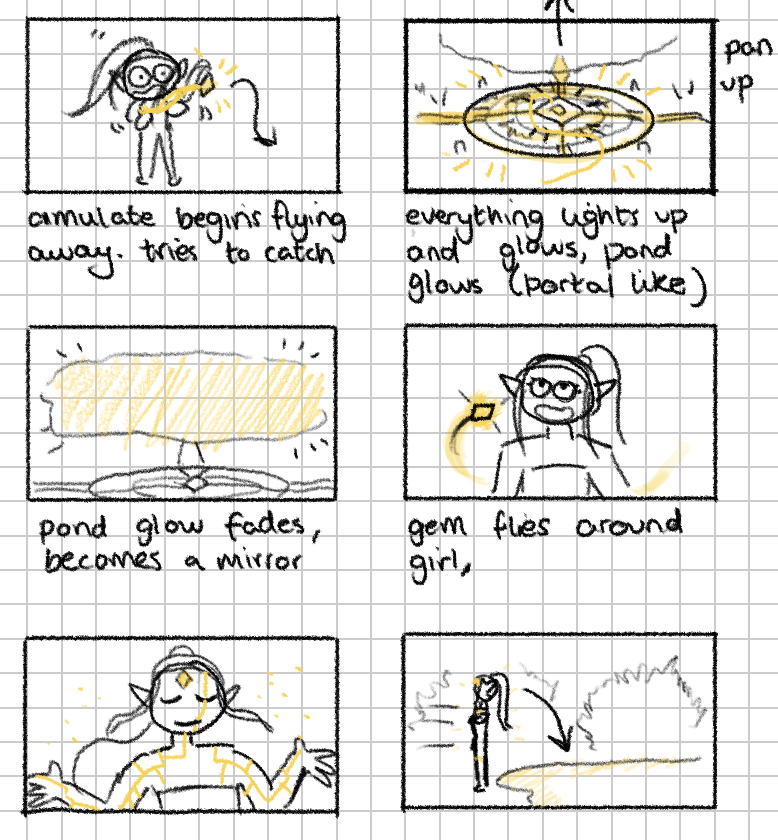 pan
up
amulate begins flying
away. tries to catch
everything lights up
and glows, pond
glows (portal like)
pond glow fades,
becomes a mirror
gem flies around
girl,